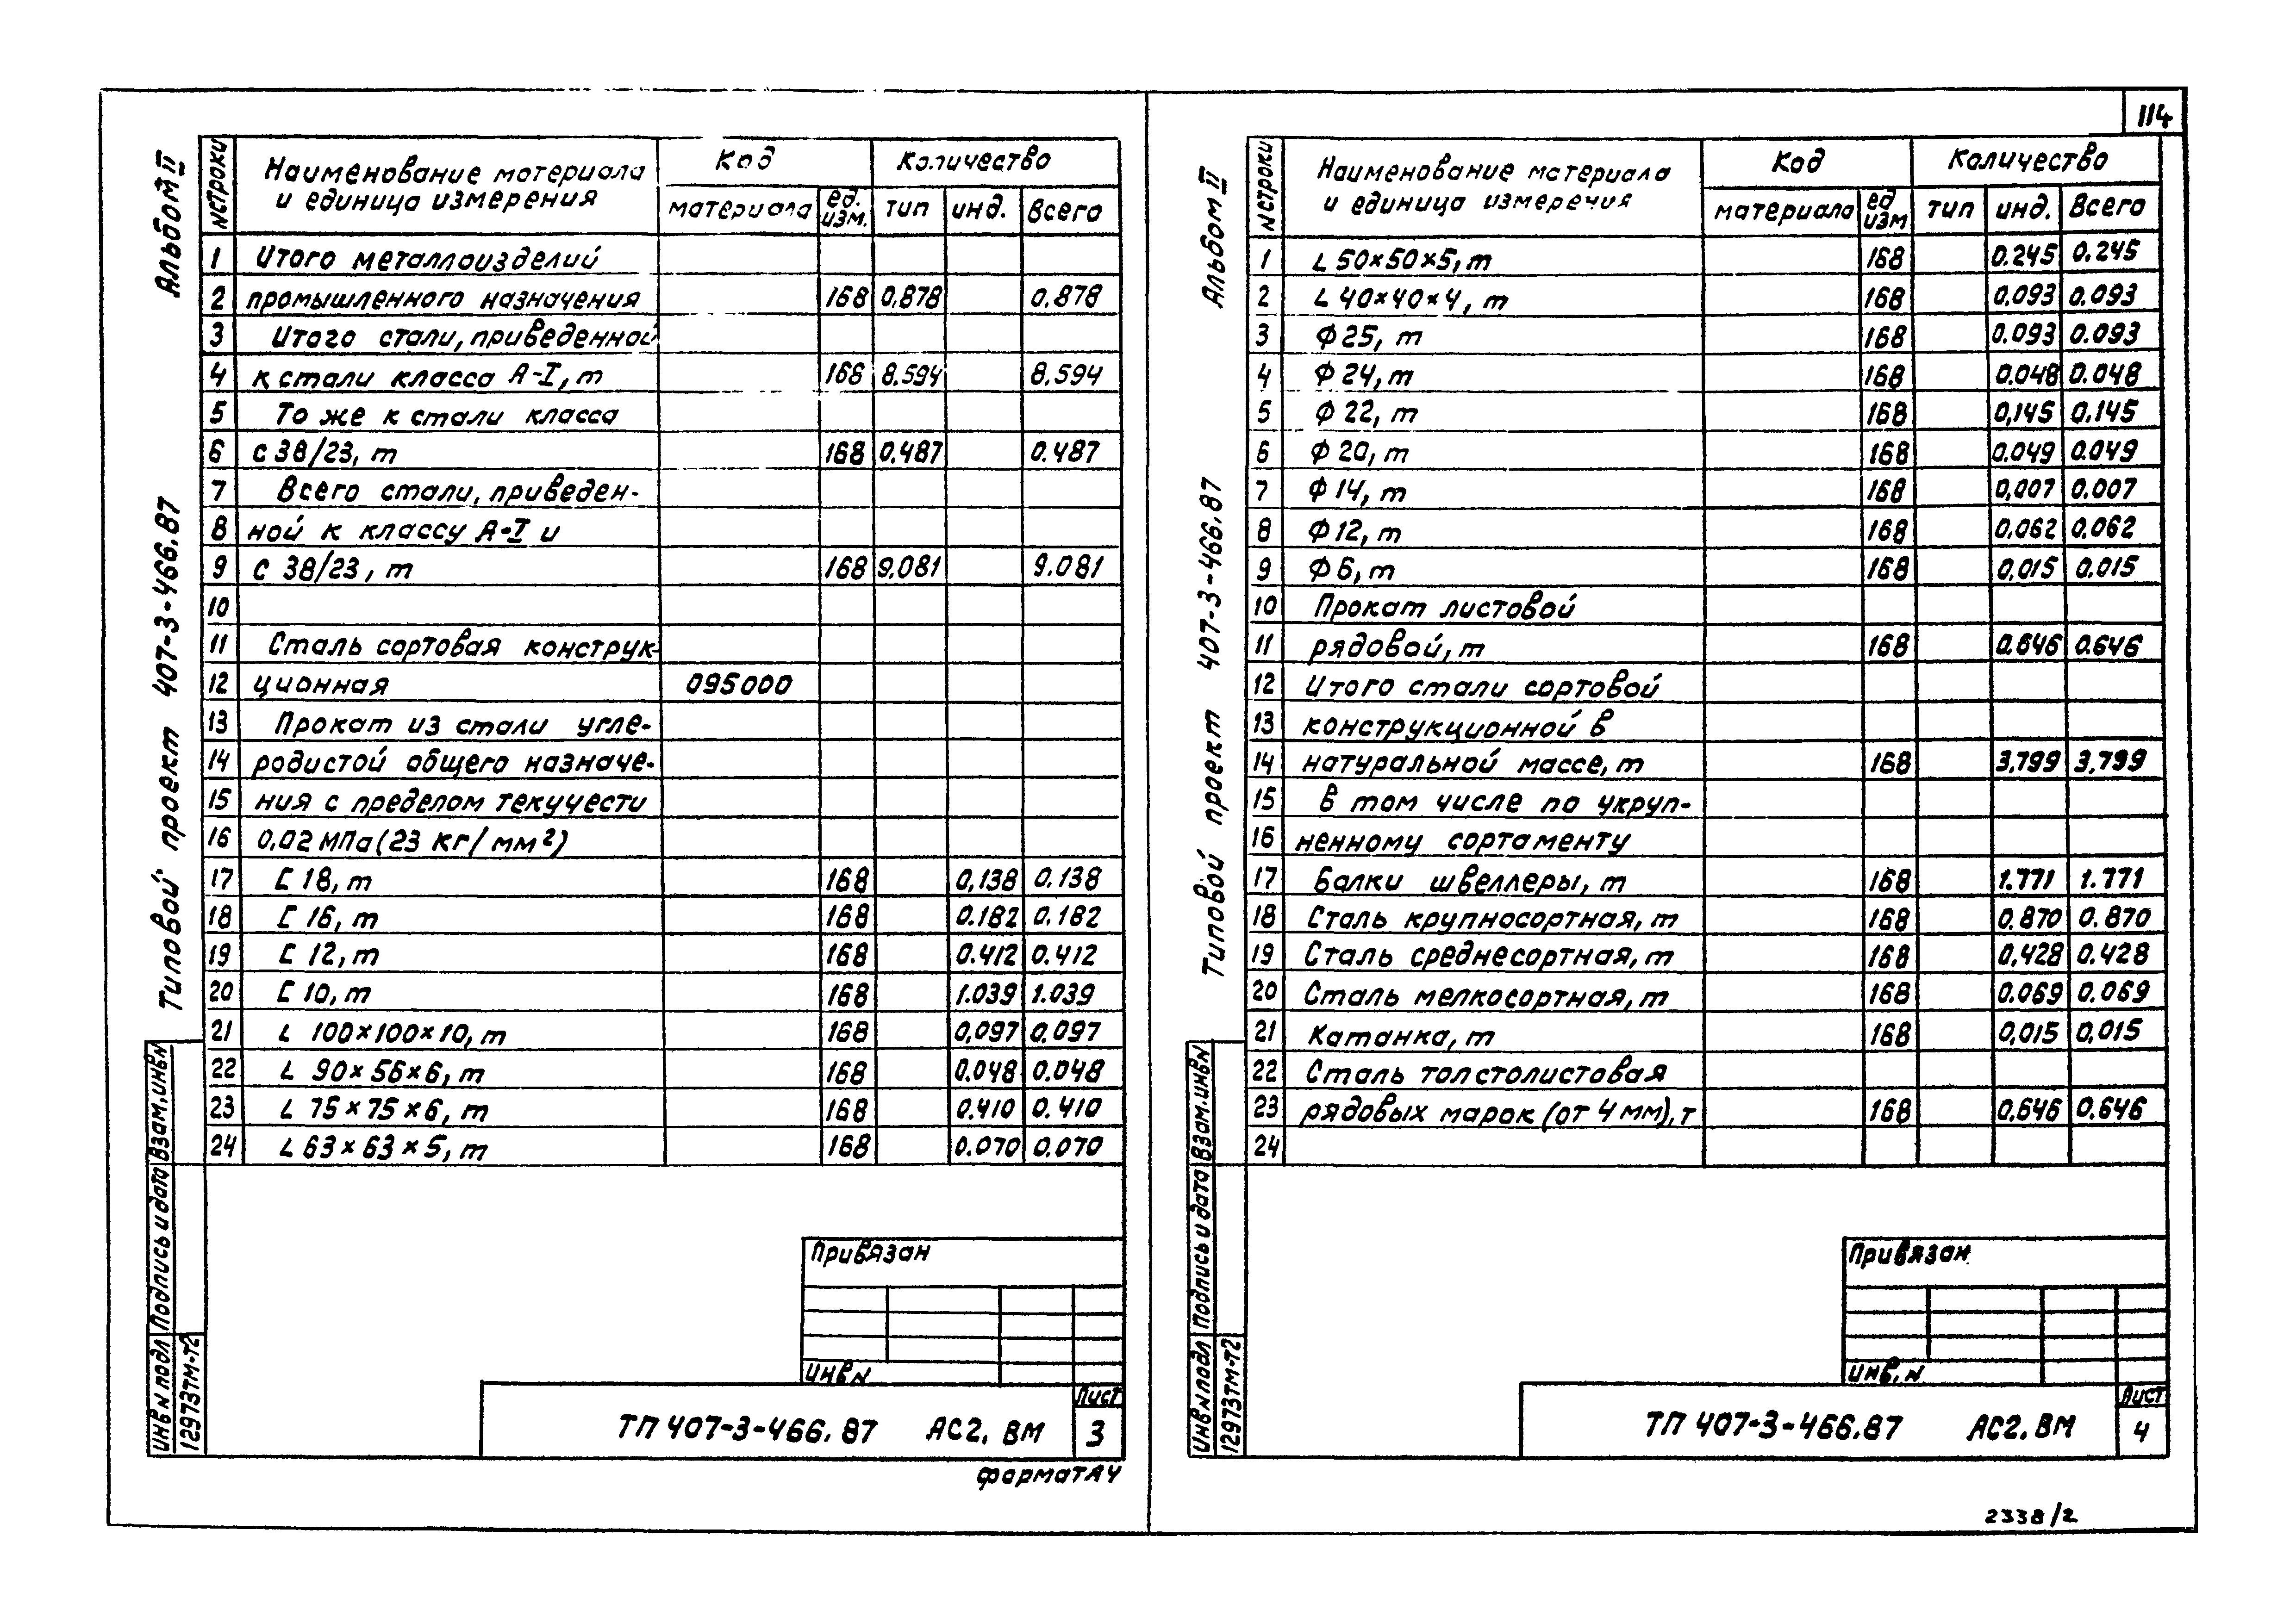 114
Альбом II
Типовой проект 407-3-466.87
N строки
Наименование материала и единица измерения
Код
Количество
материала
ед. изм.
тип
инд.
Всего
1 Итого металлоизделий
2 промышленного назначения 168 0,878 0.878
3 Итого стали, приведенной
4 к стали класса А-I, т 168 8.594 8.594
5 То же к стали класса
6 С 38/23, т 168 0.487 0.487
7 Всего стали, приведен-
8 ной к классу А-I и
9 С 38/23, т 168 9.081 9.081
10
11 Сталь сортовая конструк-
12 ционная 095000
13 Прокат из стали угле-
14 родистой общего назначе-
15 ния с пределом текучести
16 0,02 МПа (23 кг/мм²)
17 [ 18, т 168 0,138 0.138
18 [ 16, т 168 0.182 0.182
19 [ 12, т 168 0.412 0.412
20 [ 10, т 168 1.039 1.039
21 L 100×100×10, т 168 0,097 0.097
22 L 90×56×6, т 168 0.048 0.048
23 L 75×75×6, т 168 0.410 0.410
24 L 63×63×5, т 168 0.070 0.070
Привязан
Инв N
ТП 407-3-466.87 АС2. ВМ
Лист
3
формат А4
Взам. инв N
Подпись и дата
Инв N подл
12973тм-т2
Альбом II
Типовой проект 407-3-466.87
N строки
Наименование материала и единица измерения
Код
Количество
материала
ед изм
тип
инд.
Всего
1 L 50×50×5, т 168 0.245 0.245
2 L 40×40×4, т 168 0,093 0.093
3 Ф 25, т 168 0.093 0.093
4 Ф 24, т 168 0.048 0.048
5 Ф 22, т 168 0,145 0,145
6 Ф 20, т 168 0.049 0.049
7 Ф 14, т 168 0,007 0.007
8 Ф 12, т 168 0,062 0,062
9 Ф 6, т 168 0,015 0,015
10 Прокат листовой
11 рядовой, т 168 0.646 0.646
12 Итого стали сортовой
13 конструкционной в
14 натуральной массе, т 168 3,799 3,799
15 В том числе по укруп-
16 ненному сортаменту
17 Балки швеллеры, т 168 1.771 1.771
18 Сталь крупносортная, т 168 0.870 0.870
19 Сталь среднесортная, т 168 0,428 0.428
20 Сталь мелкосортная, т 168 0.069 0.069
21 Катанка, т 168 0,015 0,015
22 Сталь толстолистовая
23 рядовых марок (от 4 мм), т 168 0.646 0.646
24
Привязан
Инв. N
ТП 407-3-466.87 АС2. ВМ
Лист
4
Взам. инв N
Подпись и дата
Инв N подл
12973тм-т2
2338/2